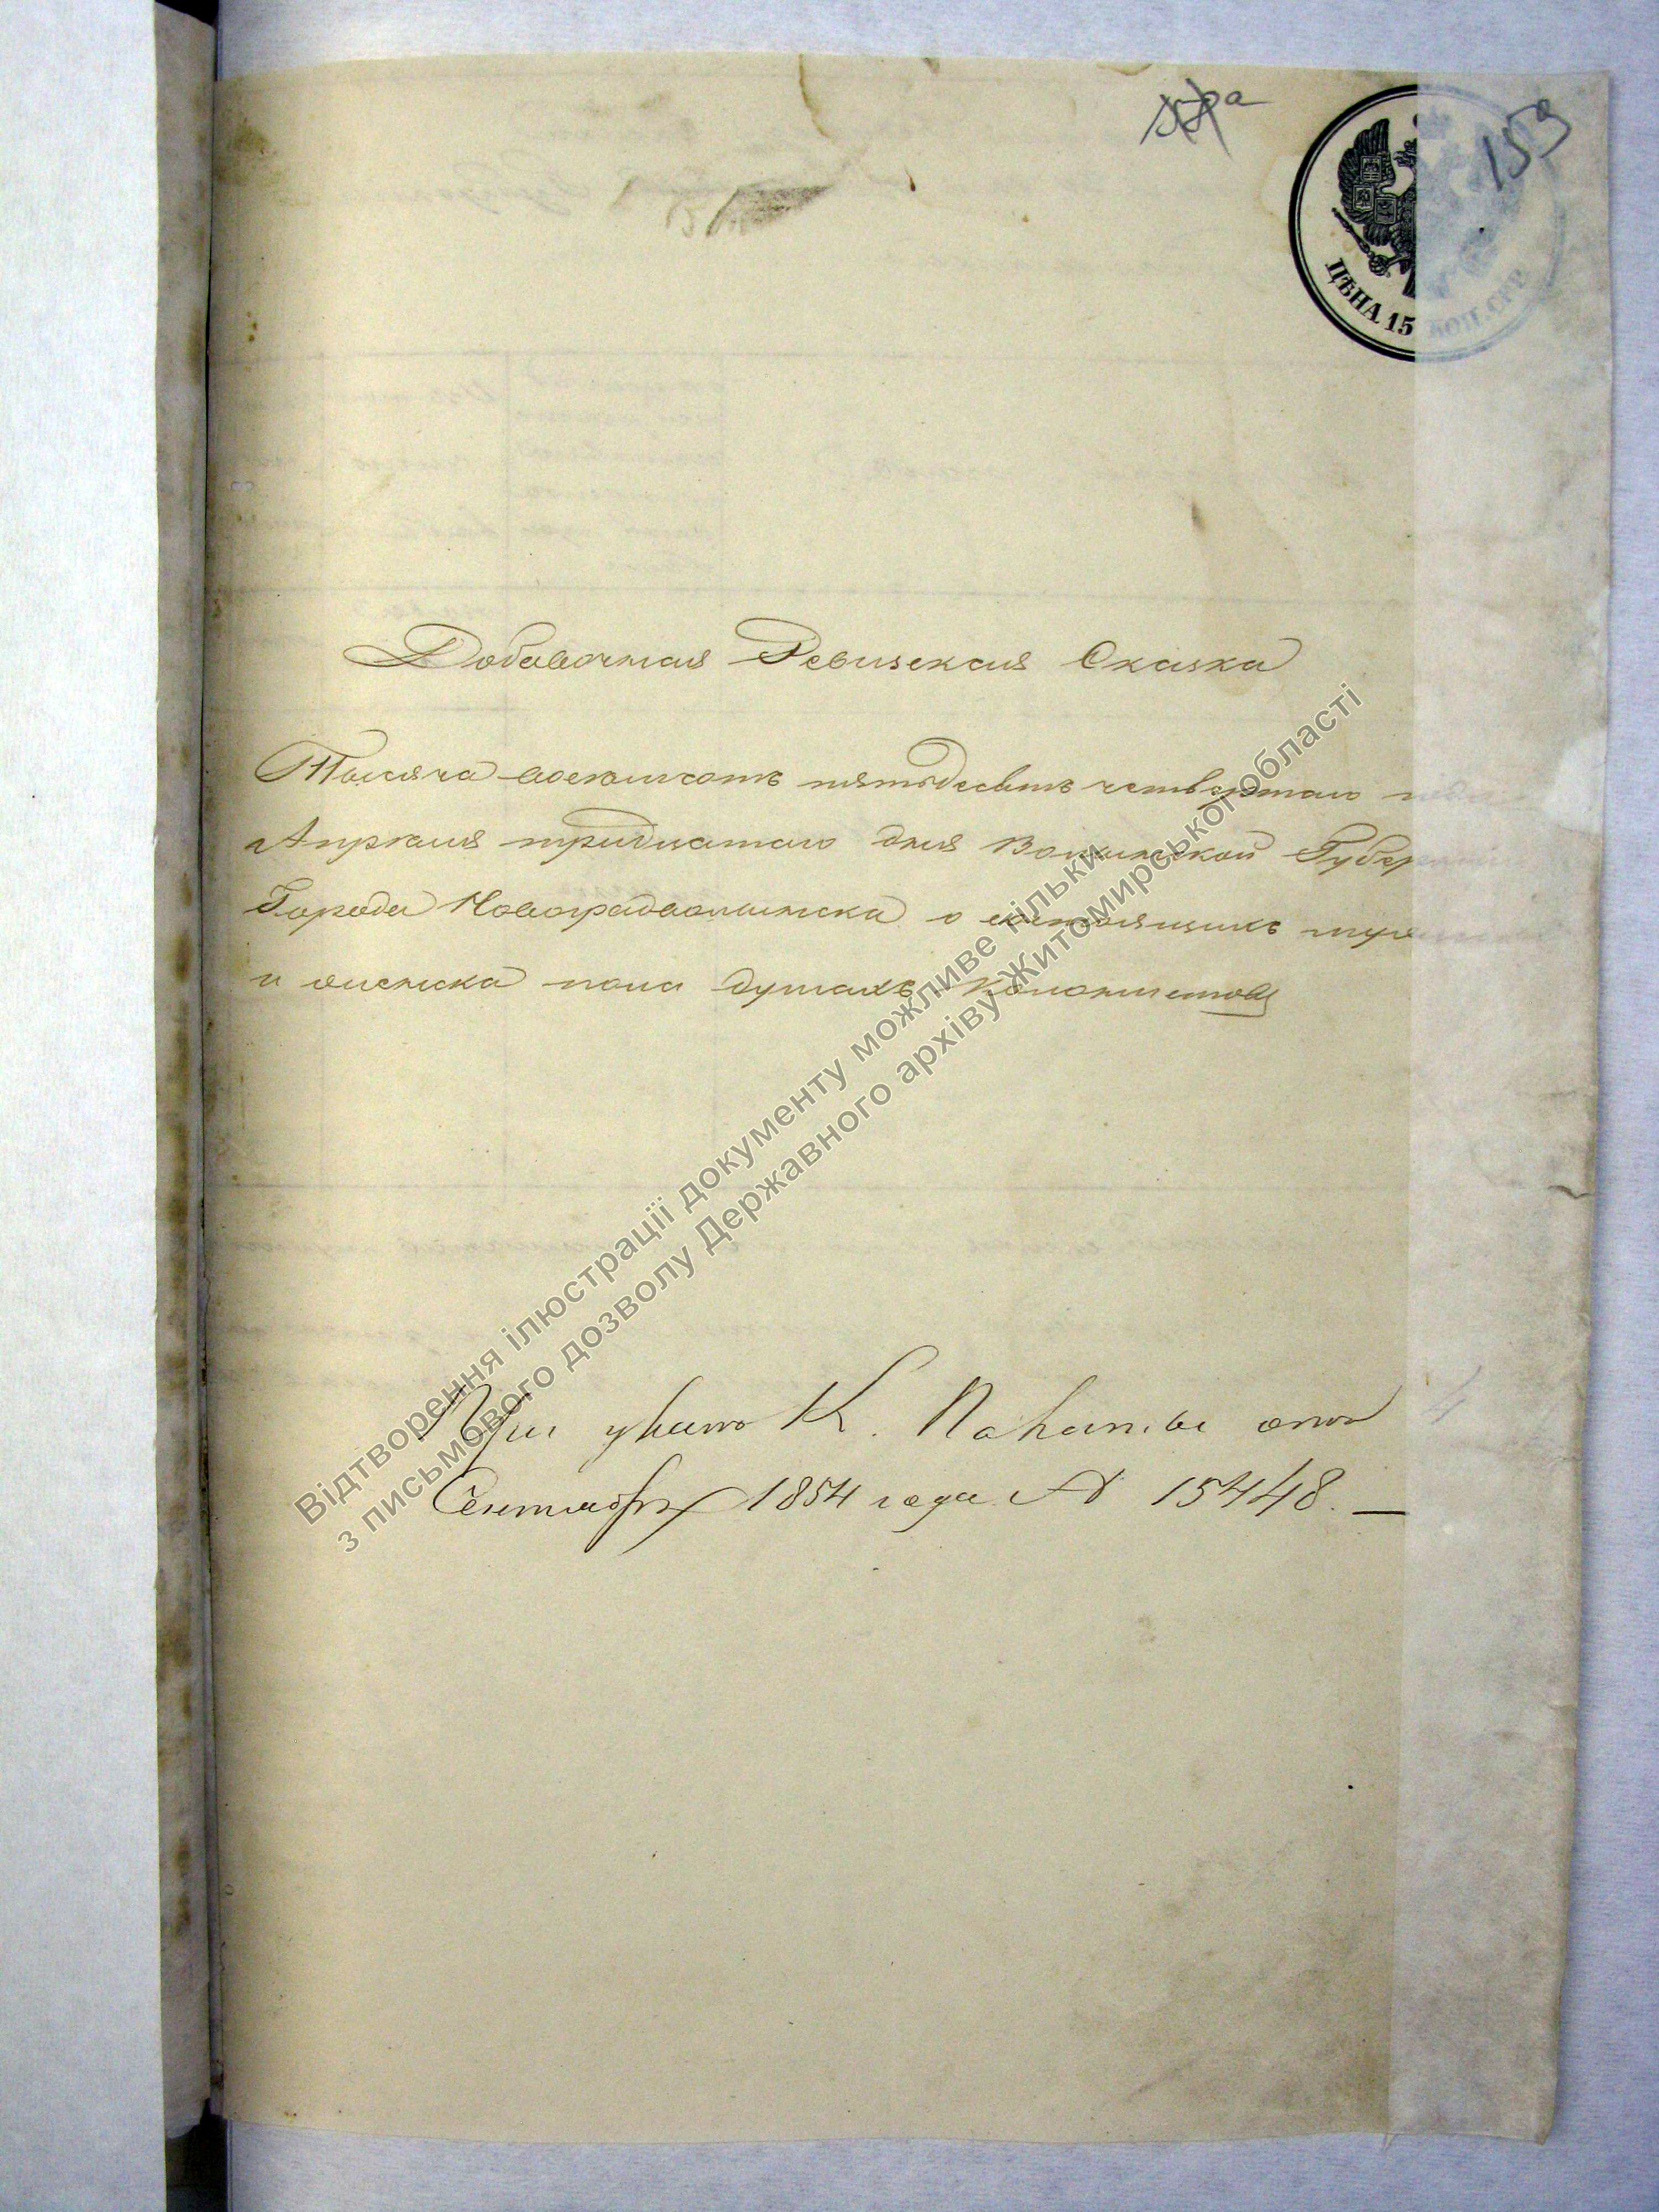 159
ЦѢНА 15 КОП. СЕР.
Добавочная Ревизская Сказка
Тысяча восемьсотъ пятьдесятъ четвертаго года
Апрѣля тридцатаго дня Волынской Губерніи
Города Новоградволынска о состоящихъ мужеска
и женска пола душахъ Колонистовъ
При указѣ К. Палаты отъ
Сентября 1854 года № 15448. —
Відтворення ілюстрації документу можливе тільки
з письмового дозволу Державного архіву Житомирської області